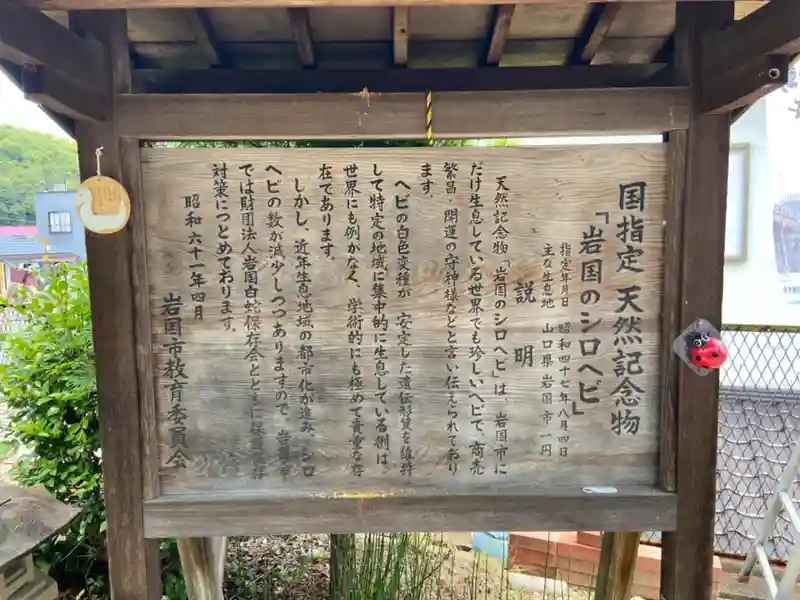 国指定 天然記念物
「岩国のシロヘビ」
指定年月日 昭和四十七年八月四日
主な生息地 山口県岩国市一円
説明
天然記念物「岩国のシロヘビ」は、岩国市に
だけ生息している世界でも珍しいヘビで、商売
繁昌・開運の守神様などと言い伝えられており
ます。
ヘビの白色変種が、安定した遺伝形質を維持
して特定の地域に集中的に生息している例は
世界にも例がなく、学術的にも極めて貴重な存
在であります。
しかし、近年生息地域の都市化が進み、シロ
ヘビの数が減少しつつありますので、岩国市
では財団法人岩国白蛇保存会とともに保護保存
対策につとめております。
昭和六十一年四月
岩国市教育委員会